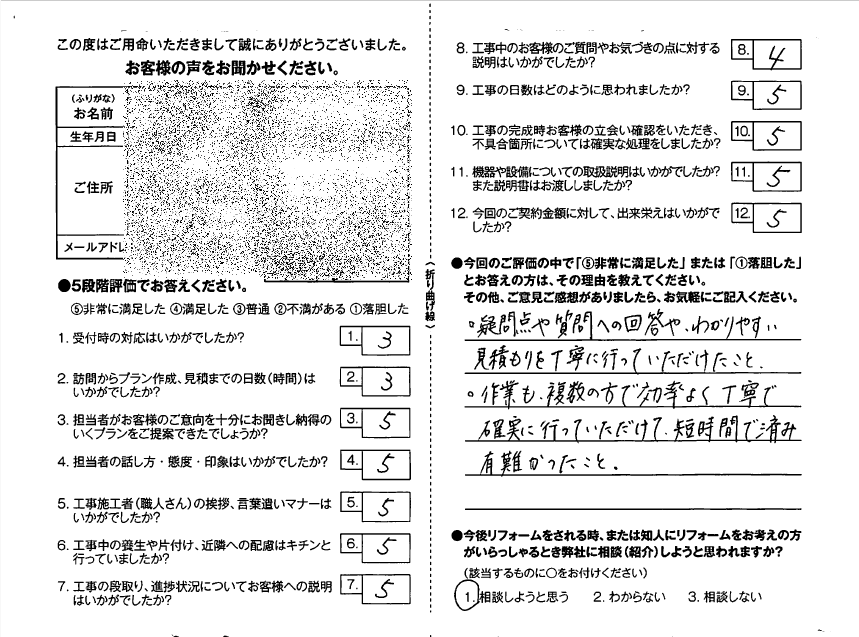 この度はご用命いただきまして誠にありがとうございました。
お客様の声をお聞かせください。
(ふりがな)
お名前
生年月日
ご住所
メールアドレ
●5段階評価でお答えください。
⑤非常に満足した ④満足した ③普通 ②不満がある ①落胆した
1. 受付時の対応はいかがでしたか?
1. 3
2. 訪問からプラン作成、見積までの日数(時間)は
いかがでしたか?
2. 3
3. 担当者がお客様のご意向を十分にお聞きし納得の
いくプランをご提案できたでしょうか?
3. 5
4. 担当者の話し方・態度・印象はいかがでしたか?
4. 5
5. 工事施工者(職人さん)の挨拶、言葉遣いマナーは
いかがでしたか?
5. 5
6. 工事中の養生や片付け、近隣への配慮はキチンと
行っていましたか?
6. 5
7. 工事の段取り、進捗状況についてお客様への説明
はいかがでしたか?
7. 5
(折り曲げ線)
8. 工事中のお客様のご質問やお気づきの点に対する
説明はいかがでしたか?
8. 4
9. 工事の日数はどのように思われましたか?
9. 5
10. 工事の完成時お客様の立会い確認をいただき、
不具合箇所については確実な処理をしましたか?
10. 5
11. 機器や設備についての取扱説明はいかがでしたか?
また説明書はお渡ししましたか?
11. 5
12. 今回のご契約金額に対して、出来栄えはいかがで
したか?
12. 5
●今回のご評価の中で「⑤非常に満足した」または「①落胆した」
とお答えの方は、その理由を教えてください。
その他、ご意見ご感想がありましたら、お気軽にご記入ください。
○疑問点や質問への回答や、わかりやすい
見積もりを丁寧に行っていただけたこと。
○作業も、複数の方で効率よく丁寧で
確実に行っていただけて、短時間で済み
有難かったこと。
●今後リフォームをされる時、または知人にリフォームをお考えの方
がいらっしゃるとき弊社に相談(紹介)しようと思われますか?
(該当するものに○をお付けください)
1. 相談しようと思う 2. わからない 3. 相談しない